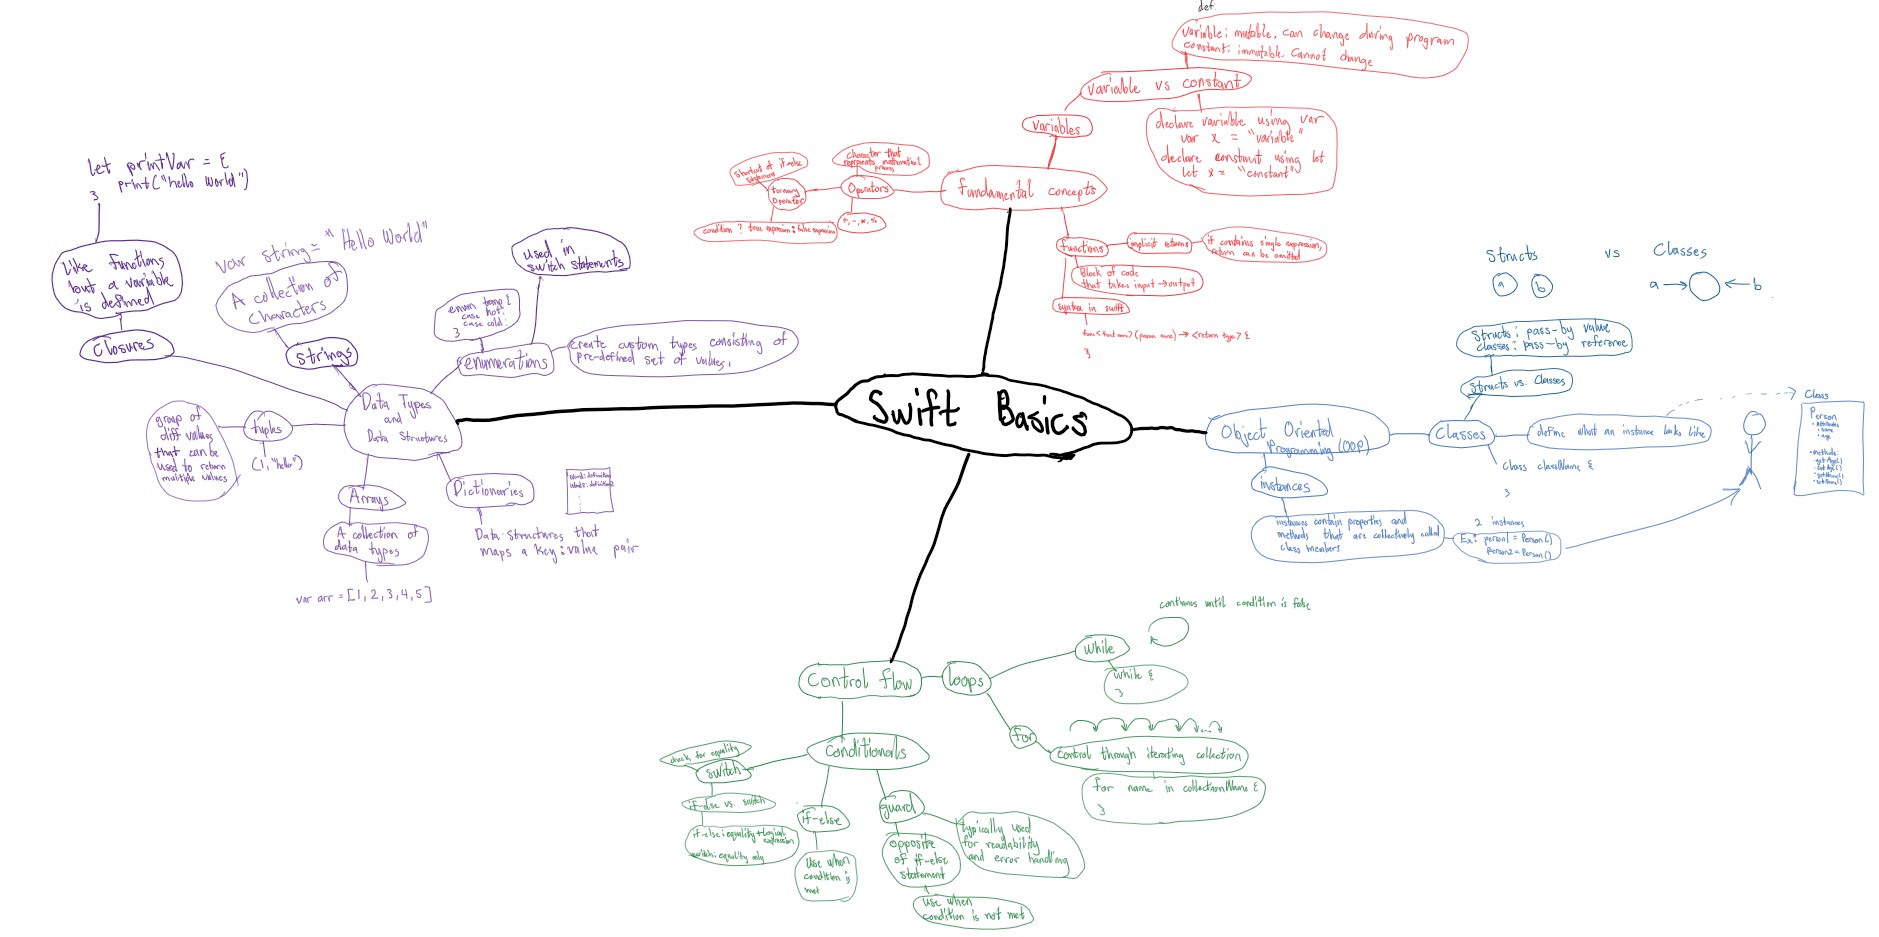 def.
variable: mutable. can change during program
constant: immutable. Cannot change
variable vs constant
variables
declare variable using var
var x = "variable"
declare constant using let
let x = "constant"
fundamental concepts
Operators
character that
represents mathematical
+, -, *, %
Operator
shortcut of if-else
statement
condition ? true expression : false expression
functions
implicit returns
if contains single expression,
return can be omitted
Block of code
that takes input → output
syntax in swift
}
let printVar = {
print("hello World")
}
Like functions
but a variable
is defined
Closures
var string = "Hello World"
A collection of
characters
strings
used in
switch statements
enum temp {
case hot:
case cold:
}
enumerations
create custom types consisting of
pre-defined set of values.
Data Types
and
Data Structures
tuples
group of
diff values
that can be
used to return
multiple values
(1, "hello")
Arrays
A collection of
data types
var arr = [1, 2, 3, 4, 5]
Dictionaries
word: definition
Data-Structures that
maps a key: value pair
Swift Basics
Structs vs Classes
a b
a → ← b
Structs: pass-by value
classes: pass-by reference
Structs vs. Classes
Object Oriented
Programming (OOP)
Classes
define what an instance looks like
class className {
}
Class
Person
• Attributes
• name
• age
• methods:
instances
instances contain properties and
methods that are collectively called
class members
2 instances
Ex: person1 = Person()
person2 = Person()
Control flow
loops
while
continues until condition is false
while {
}
for
control through iterating collection
for name in collectionName {
}
Conditionals
switch
check for equality
if-else vs. switch
if-else: equality + Logical
expression
switch: equality only
if-else
Use when
condition is
met
guard
typically used
for readability
and error handling
opposite
of if-else
statement
Use when
condition is not met